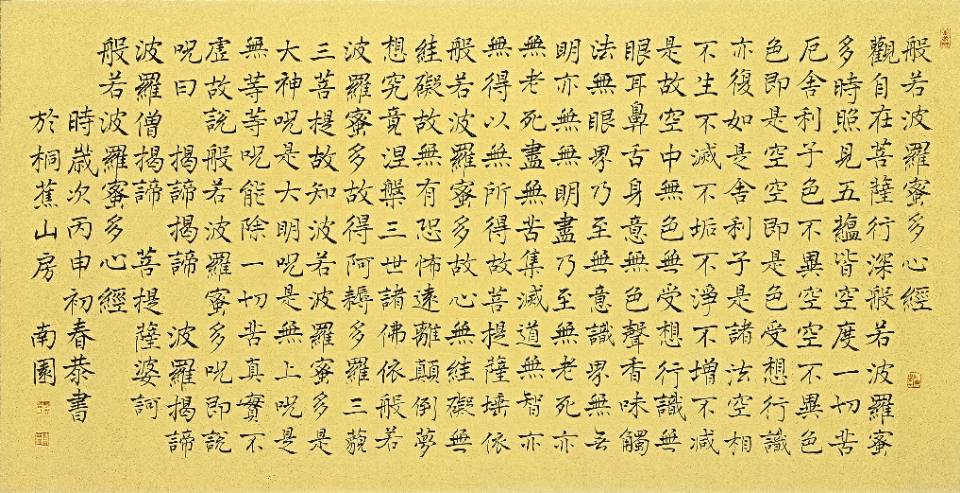 般若波羅蜜多心經
觀自在菩薩行深般若波羅蜜
多時照見五蘊皆空度一切苦
厄舍利子色不異空空不異色
色即是空空即是色受想行識
亦復如是舍利子是諸法空相
不生不滅不垢不淨不增不減
是故空中無色無受想行識無
眼耳鼻舌身意無色聲香味觸
法無眼界乃至無意識界無无
明亦無無明盡乃至無老死亦
無老死盡無苦集滅道無智亦
無得以無所得故菩提薩埵依
般若波羅蜜多故心無絓礙無
絓礙故無有恐怖遠離顛倒夢
想究竟涅槃三世諸佛依般若
波羅蜜多故得阿耨多羅三藐
三菩提故知波若波羅蜜多是
大神呪是大明呪是無上呪是
無等等呪能除一切苦真實不
虛故說般若波羅蜜多呪即說
呪曰 揭諦揭諦 波羅揭諦
波羅僧揭諦 菩提薩婆訶
般若波羅蜜多心經
時嵗次丙申初春恭書
於桐蕉山房 南園